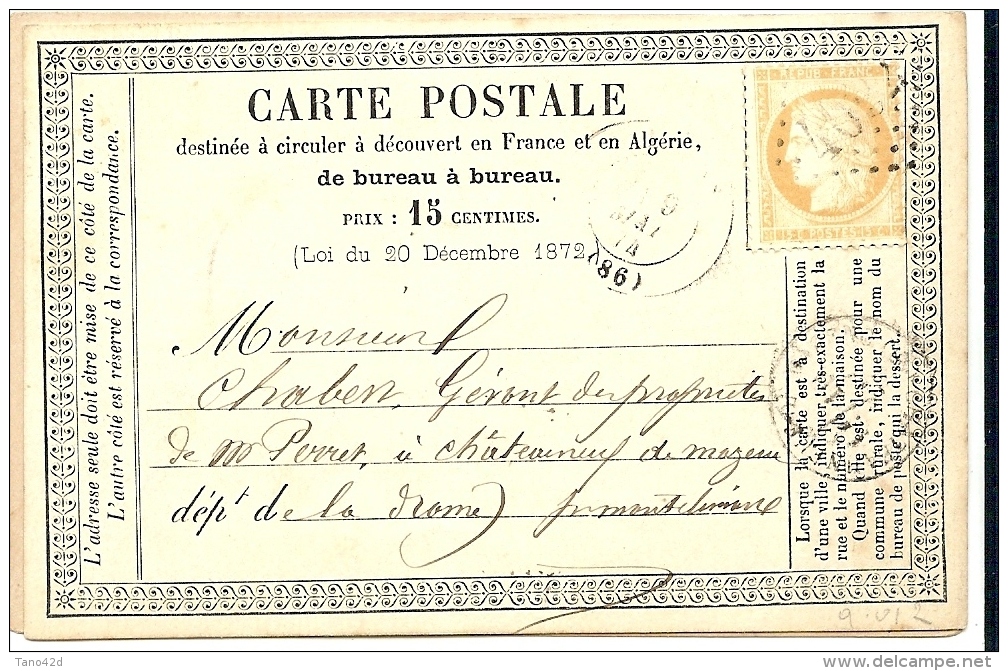 CARTE POSTALE
destinée à circuler à découvert en France et en Algérie,
de bureau à bureau.
PRIX : 15 CENTIMES.
(Loi du 20 Décembre 1872)
L'adresse seule doit être mise de ce côté de la carte.
L'autre côté est réservé à la correspondance.
REPUB. FRANC.
15 C. POSTES 15 C.
9
MAI
74
(86)
Monsieur
Chabert, Gérant des propriétés
de m Perret, à châteauneuf de mazenc
dépt de la Drome) par montelimar
Lorsque la carte est à destination
d'une ville, indiquer très-exactement la
rue et le numéro de la maison.
Quand elle est destinée pour une
commune rurale, indiquer le nom du
bureau de poste qui la dessert.
Tano42d
delcampe.net